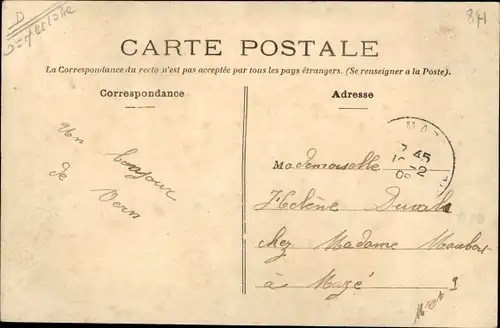 CARTE POSTALE
La Correspondance du recto n'est pas acceptée par tous les pays étrangers. (Se renseigner a la Poste).
Correspondance
Un bonjour
de Vern
Adresse
7 45
Mademoiselle
Hélène Duval
chez Madame
à Mazé